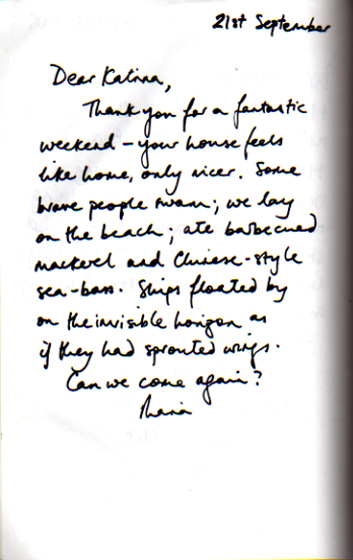 21st September
Dear Katrina,
Thank you for a fantastic
weekend – your house feels
like home, only nicer. Some
brave people swam; we lay
on the beach; ate barbecued
mackerel and Chinese-style
sea-bass. Ships floated by
on the invisible horizon as
if they had sprouted wings.
Can we come again?